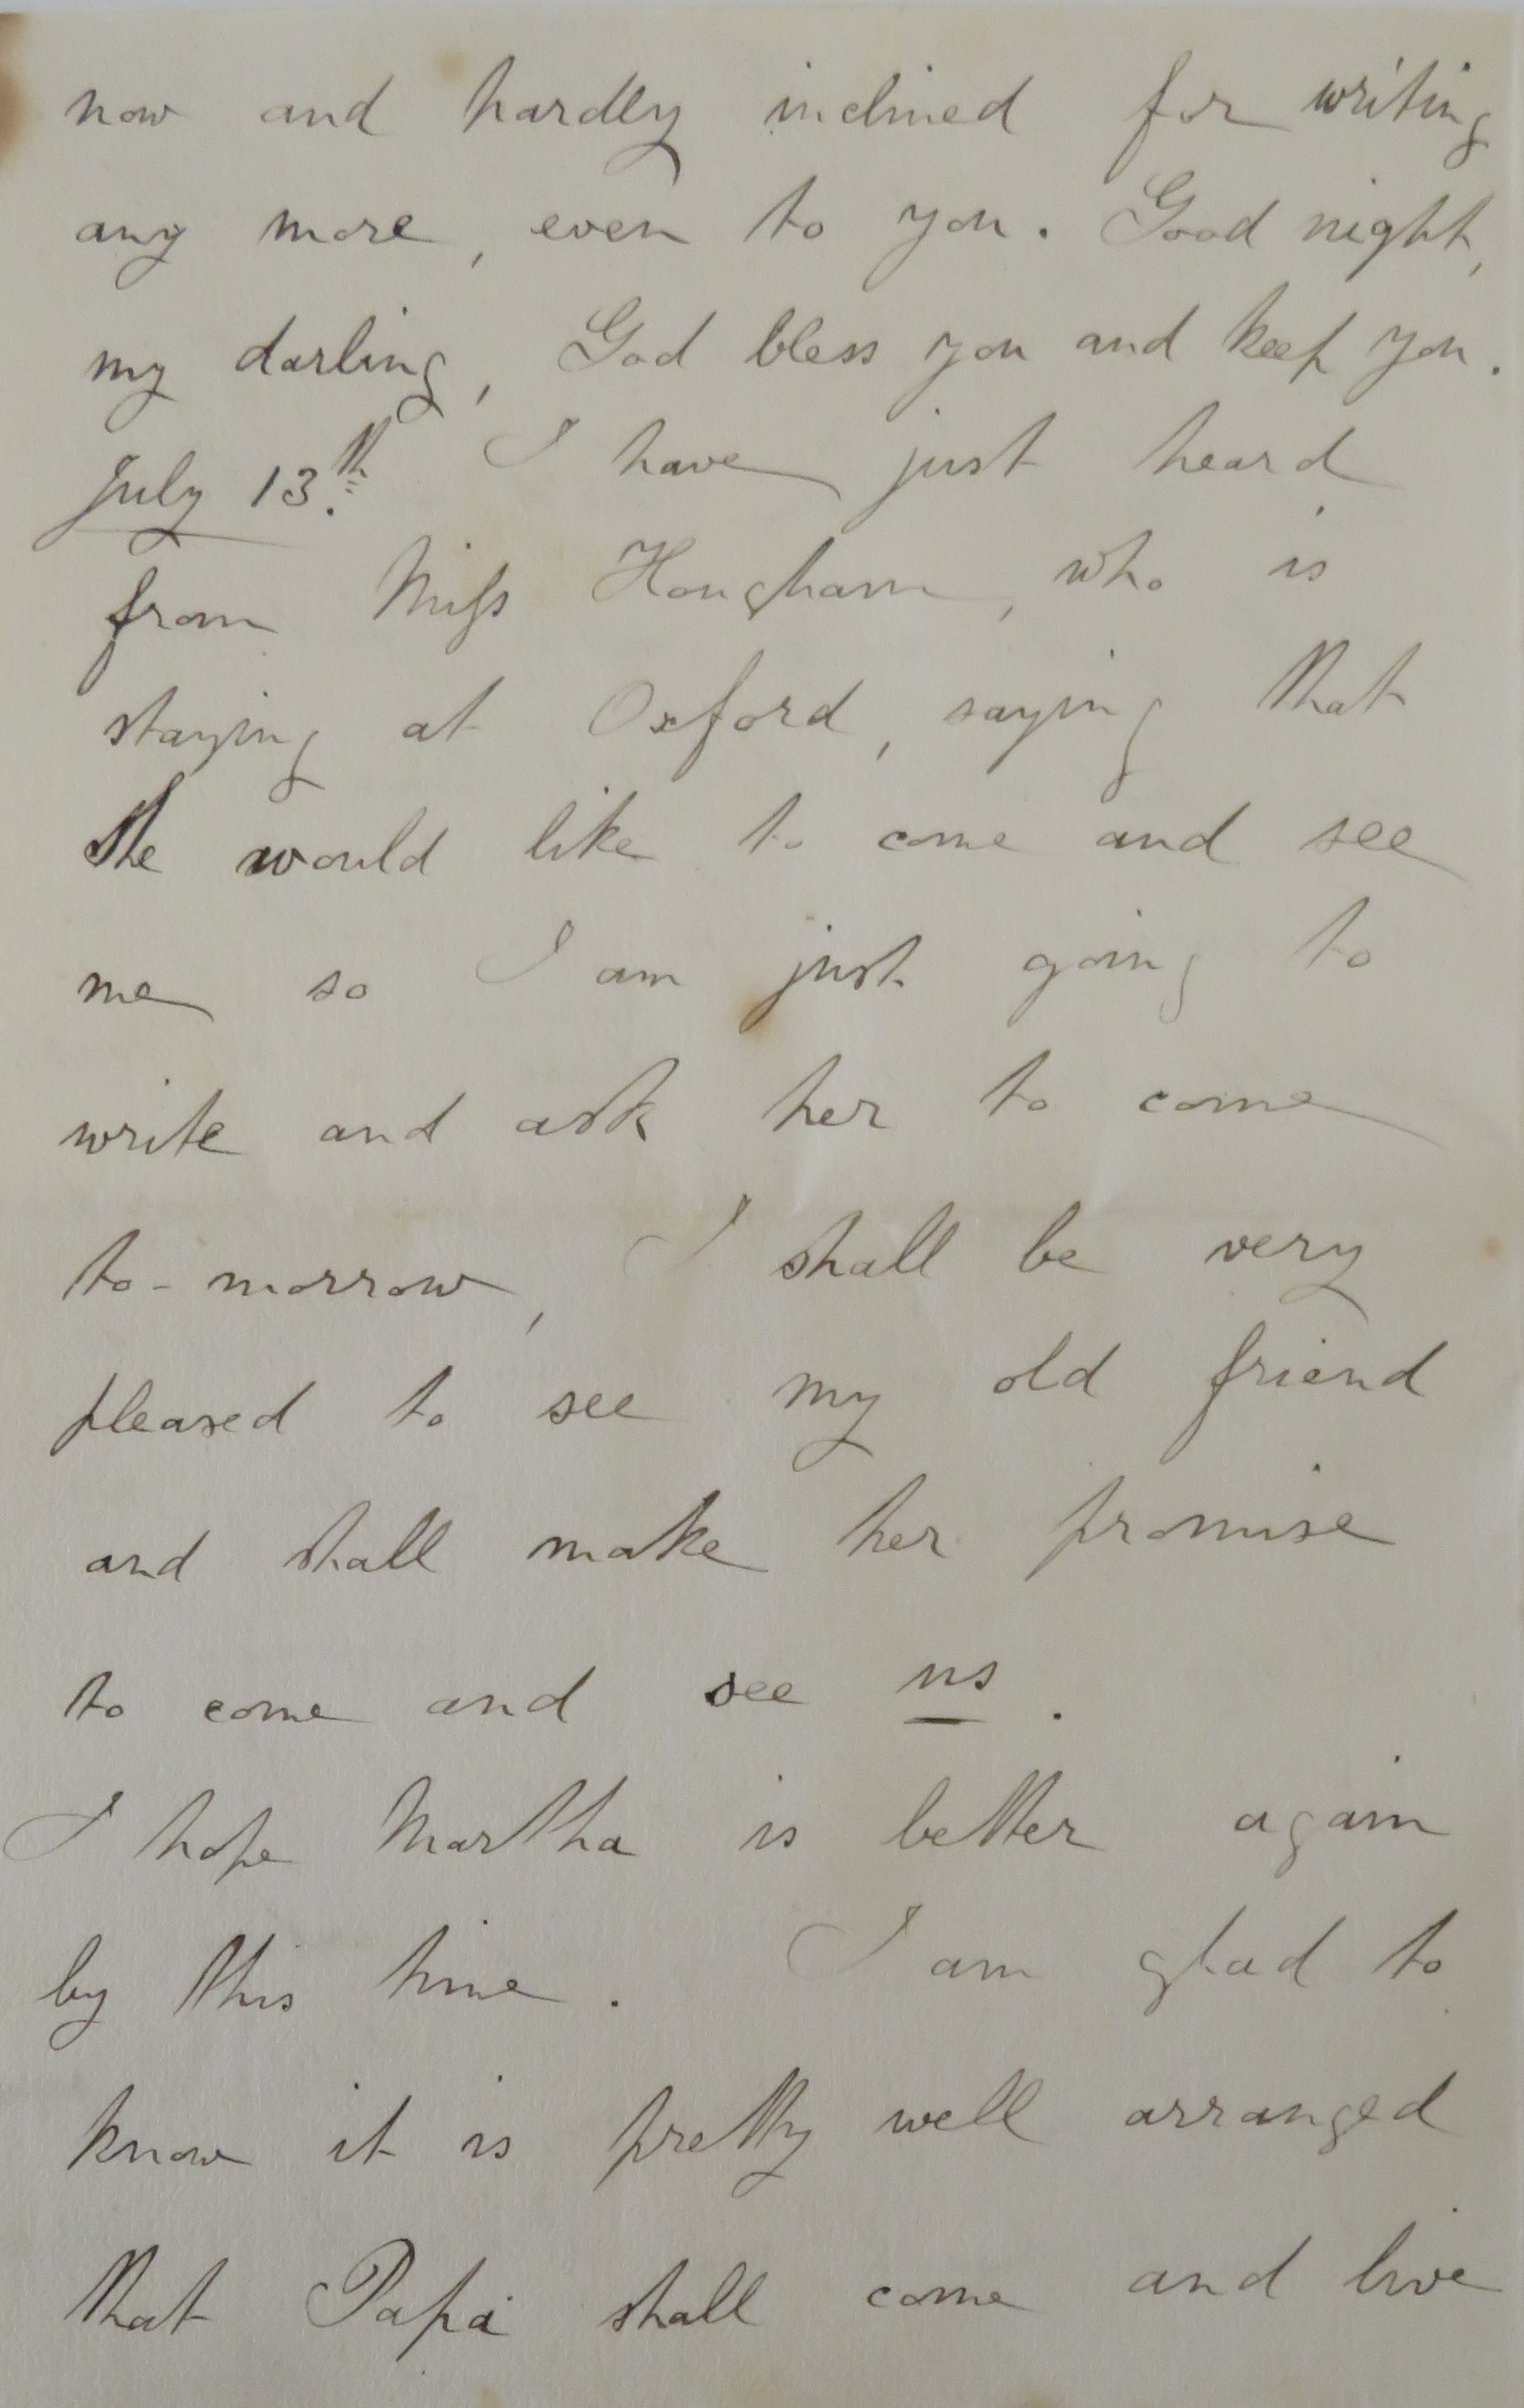 now and hardly inclined for writing
any more, even to you. Good night,
my darling, God bless you and keep you.
July 13.th I have just heard
from Miss Hougham, who is
staying at Oxford, saying that
she would like to come and see
me so I am just going to
write and ask her to come
to-morrow, I shall be very
pleased to see my old friend
and shall make her promise
to come and see us.
I hope Martha is better again
by this time. I am glad to
know it is pretty well arranged
that Papa shall come and live